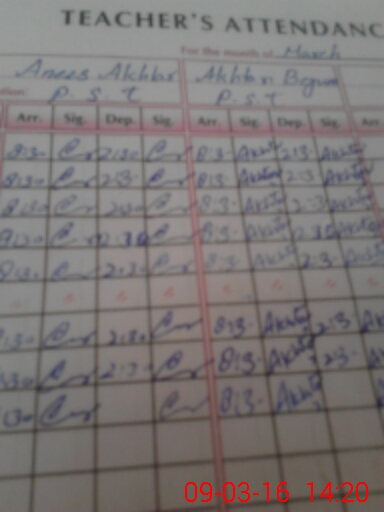 TEACHER'S ATTENDANC
For the month of March
Anees Akhtar Akhtar Begum
tion: P.S.T P.S.T
Arr. Sig. Dep. Sig. Arr. Sig. Dep. Sig. Arr
8:30 2:30 8:3- Akhtar 2:3- Akhtar
8:30 2:3- 8:3- Akhtar 2:3- Akhtar
8:30 2:30 8:3- Akhtar 2:3- Akhtar
8:30 2:30 8:3- Akhtar 2:30 Akhtar
8:30 2:30 8:3- Akhtar 2:3- Akhtar
:30 2:30 8:3- Akhtar 2:3- Akhtar
:30 2:30 8:3- Akhtar 2:3- Akhtar
:30 8:3- Akhtar
09-03-16 14:20